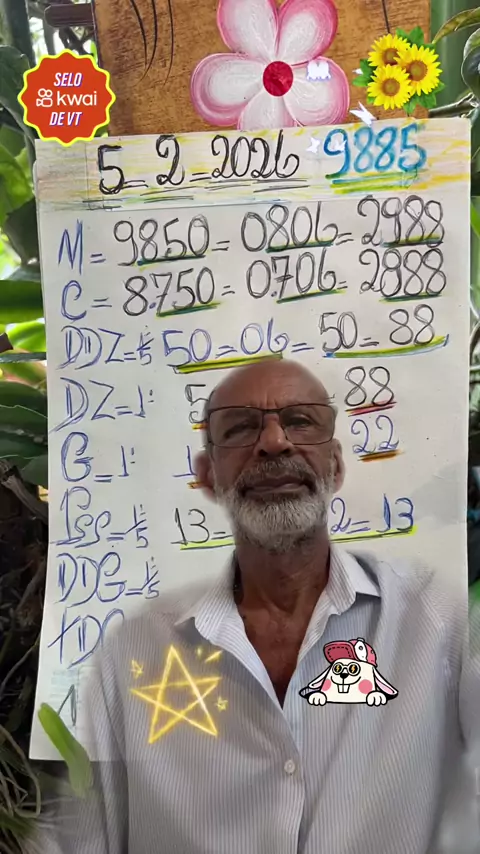 SELO
kwai
DE VT
5=2=2026 9885
M=9850=0806=2988
C=8.750=0.706=2888
DDZ=1/5 50=06=50=88
DZ=1º 5 88
G=1º 1 22
Pss=1/5 13= 2=13
DDG=1/5
TDG
1